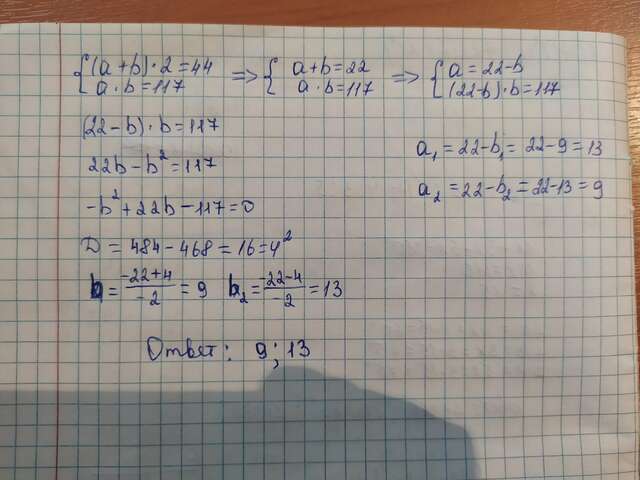 {(a+b)·2=44 => { a+b=22 => { a=22-b
a·b=117 a·b=117 (22-b)·b=117
(22-b)·b=117
22b-b²=117
-b²+22b-117=0
D=484-468=16=4²
b=\frac{-22+4}{-2}=9 b₂=\frac{-22-4}{-2}=13
Ответ: 9; 13
a₁=22-b₁=22-9=13
a₂=22-b₂=22-13=9